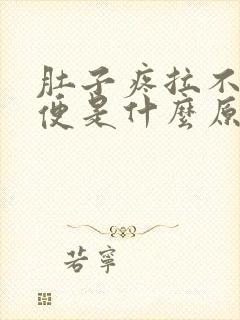 肚子疼拉不
便是什麼原
若寧